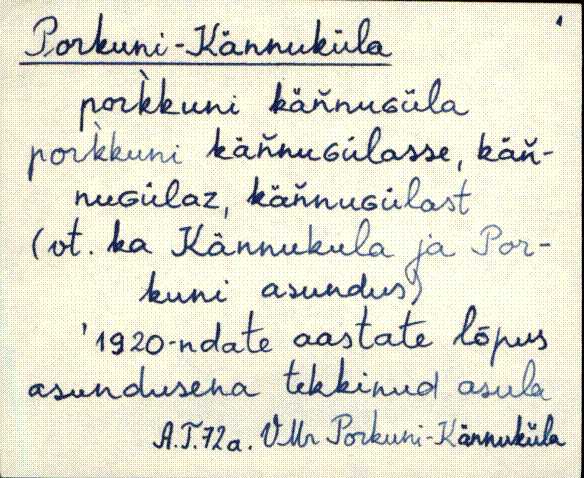 Porkuni-Kännuküla
por̀kkuni käňnuGüla
por̀kkuni käňnuGülasse, käň-
nuGülaz, käňnuGülast
(vt. ka Kännukula ja Por-
kuni asundus)
'1920-ndate aastate lõpus
asundusena tekkinud asula
A.T.72a. VMr Porkuni-Kännuküla